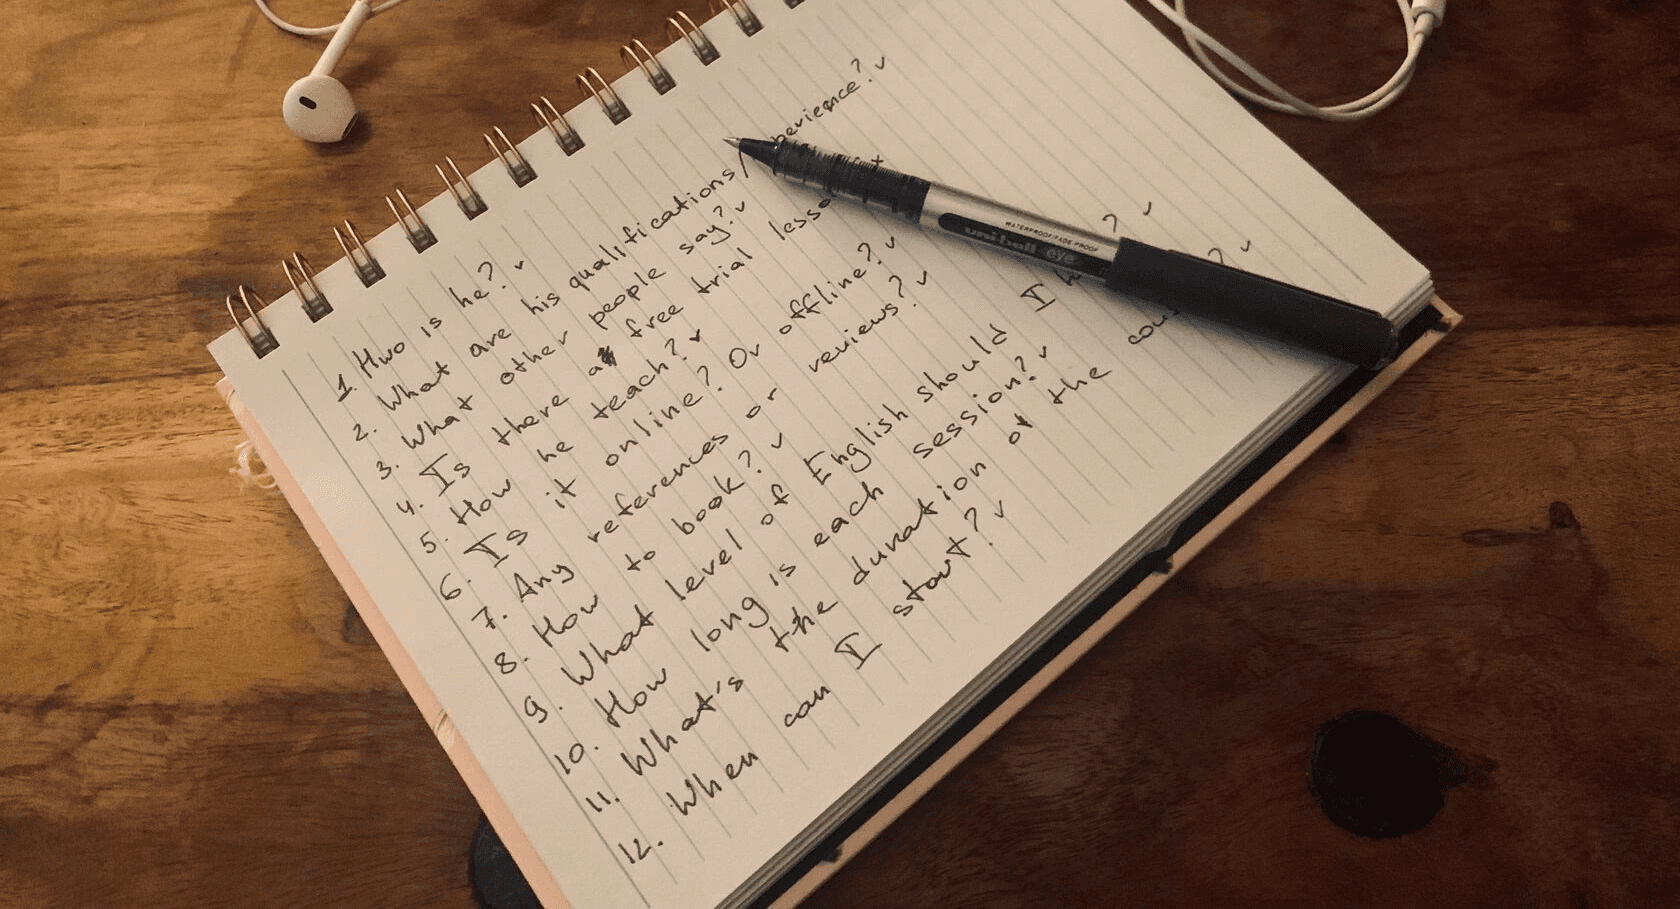 1. Hwo is he? ✓
2. What are his qualifications/experience? ✓
3. What other people say? ✓
4. Is there a free trial lesson
5. How he teach? ✓
6. Is it online? Or offline? ✓
7. Any references or reviews? ✓
8. How to book? ✓
9. What level of English should I ? ✓
10. How long is each session? ✓
11. What's the duration of the ? ✓
12. When can I start? ✓
WATERPROOF/FADE-PROOF
uni-ball eye